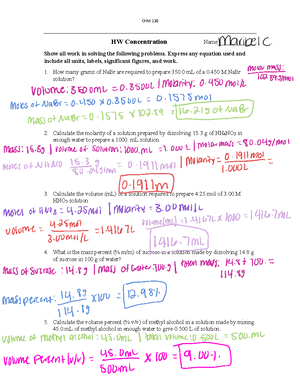 CHM 130
HW Concentration Name Maribel C
Show all work in solving the following problems. Express any equation used and
include all units, labels, significant figures, and work.
1. How many grams of NaBr are required to prepare 350.0 mL of a 0.450 M NaBr
solution?
molar mass:
102.89 g/mol
Volume: 350mL = 0.350L | Molarity: 0.450 mol/L
Moles of NaBr = 0.450 x 0.3500L = 0.1575 mol
Mass of NaBr = 0.1575 x 102.89 = 16.21g of NaBr
2. Calculate the molarity of a solution prepared by dissolving 15.3 g of NH4NO3 in
enough water to prepare a 1000. mL solution.
Mass: 15.3g | volume of solution: 1000mL = 1.000L | molar mass = 80.04g/mol
moles of NH4NO3 15.3 g / 80.04g/mol = 0.1911 mol | Molarity = 0.1911 mol / 1.000L =
0.1911m
3. Calculate the volume (mL) of a solution required to prepare 4.25 mol of 3.00 M
HNO3 solution.
Moles of HNO3 = 4.25mol | Molarity = 3.00 mol/L
volume = 4.25mol / 3.00mol/L = 1.4167L
Volume(mL) = 1.4167L x 1000 = 1416.7mL
1416.7mL
4. What is the mass percent (% m/m) of sucrose in a solution made by dissolving 14.8 g
of sucrose in 100.g of water?
Mass of Sucrose = 14.8g | mass of water 100g | total mass: 14.8 + 100 =
114.8g
Mass percent: 14.8g / 114.8g x 100 = 12.98%
5. Calculate the volume percent (% v/v) of methyl alcohol in a solution made by mixing
45.0 mL of methyl alcohol in enough water to give 0.500 L of solution.
volume of methyl alcohol: 45.0mL | total volume is 500L = 500mL
volume Percent (v/v) = 45.0mL / 500mL x 100 = 9.00%